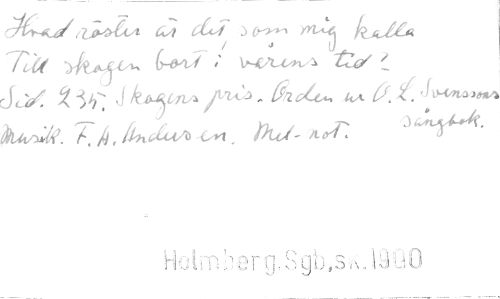 Hvad röster är det, som mig kalla
Till skogen bort i vårens tid?
Sid. 235. Skogens pris. Orden ur O. L. Svenssons
sångbok.
Musik. F. A. Andersen. Mel-not.
Holmberg.Sgb,sk.1900